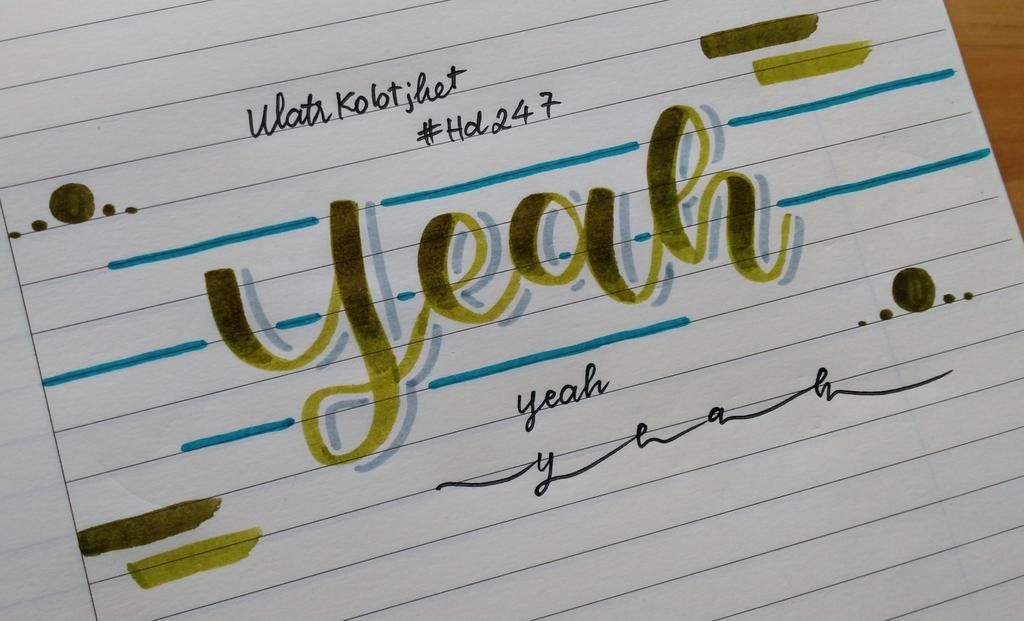 Ulatr Kolotjhet
#Hd247
yeah
yeah
yeah